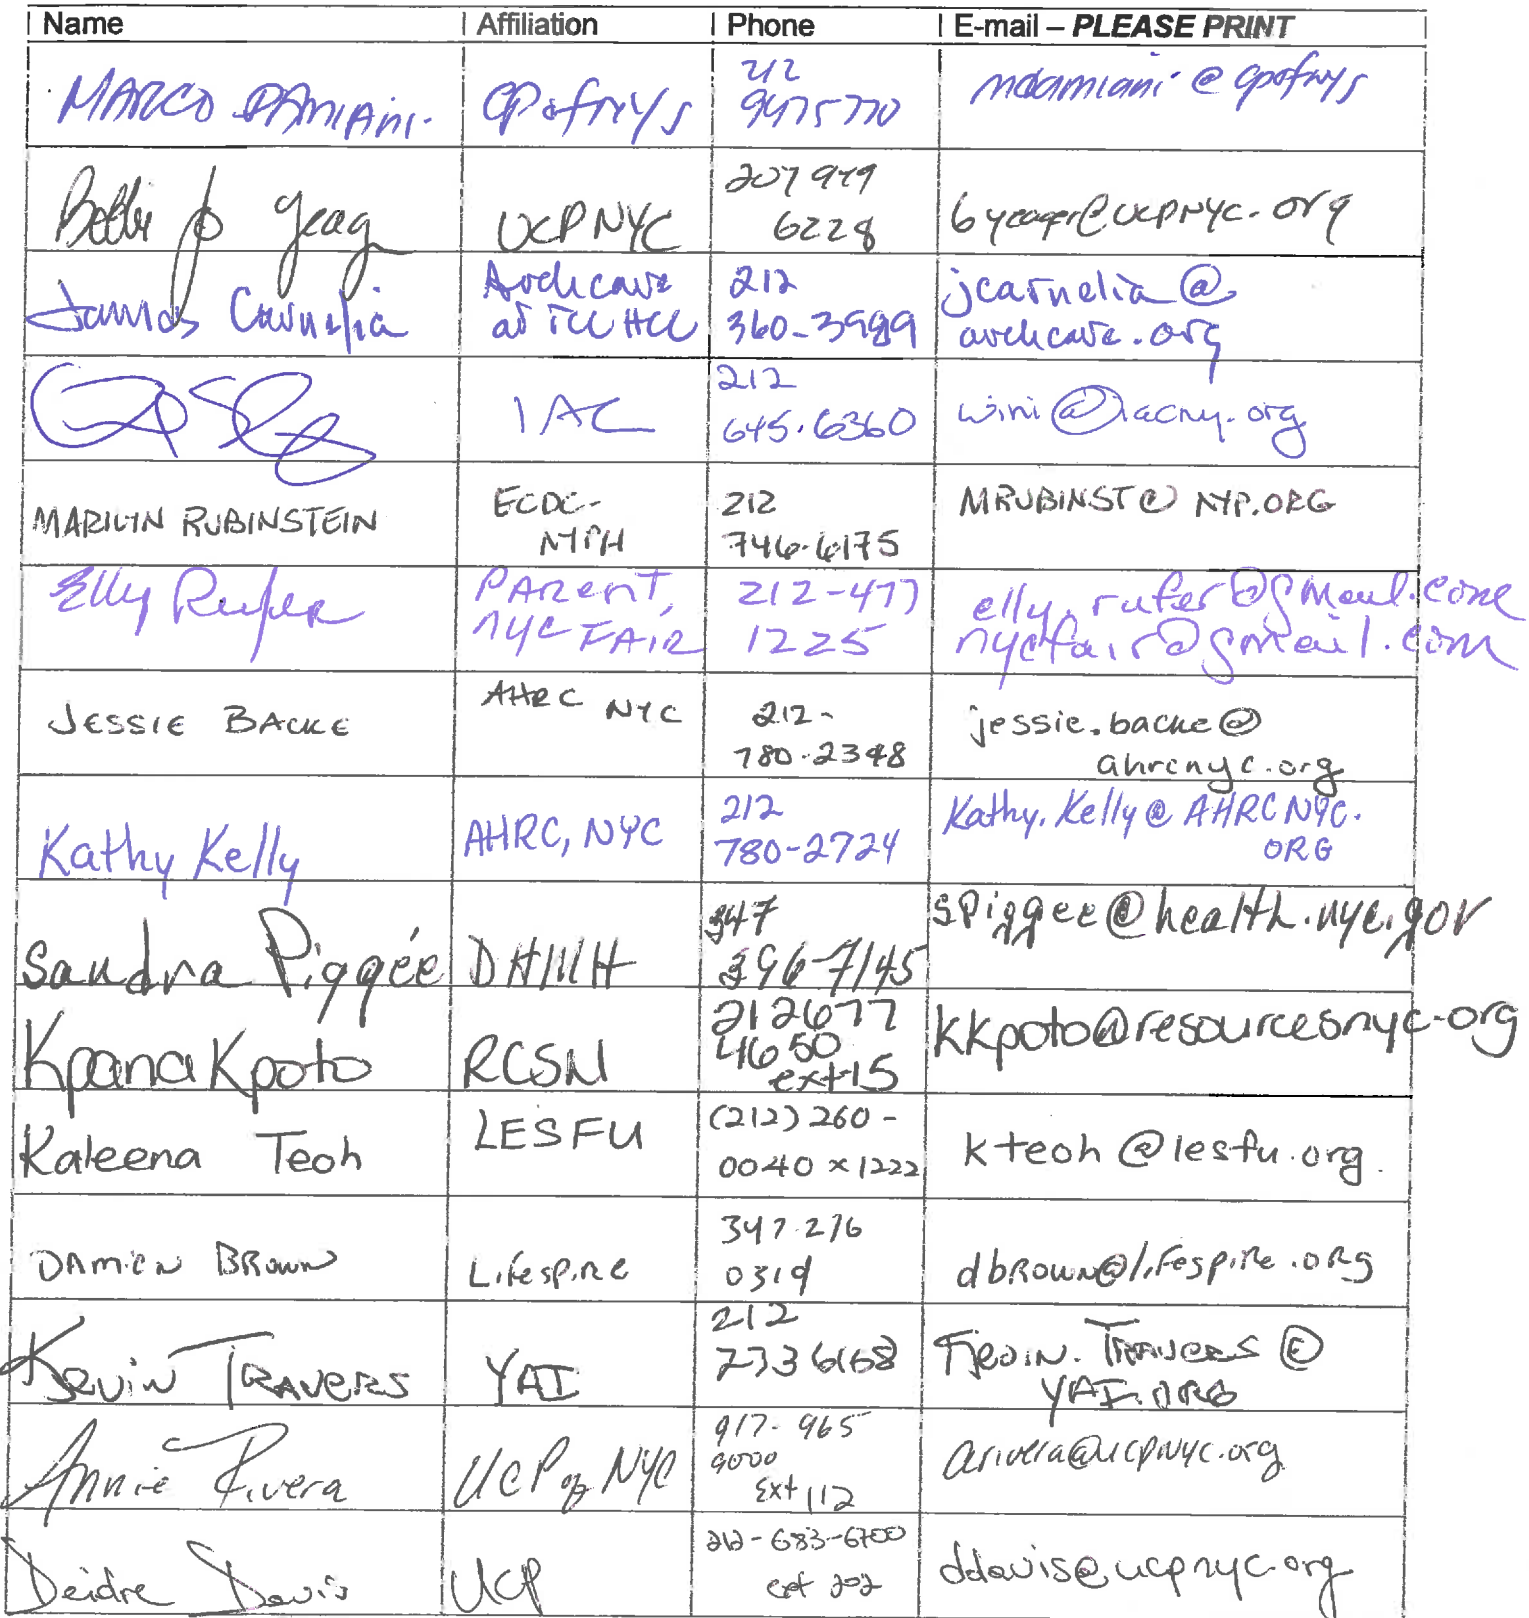 Name Affiliation Phone E-mail – PLEASE PRINT
MARCO DAMIANI CPofNYS 212 9475770 mdamiani@cpofnys
Bobbie Jo Yeag UCP NYC 207 949 6228 byeager@ucpnyc.org
James Carnelia Archcare at TCC HCC 212 360-3999 jcarnelia@
archcare.org
IAC 212 645.6360 wini@iacny.org
MARILYN RUBINSTEIN ECDC- NYPH 212 746-6175 MRUBINST@NYP.ORG
Elly Rufer PARENT, NYC FAIR 212-477 1225 elly.rufer@gmail.com
nycfair@gmail.com
JESSIE BACKE AHRC NYC 212- 780-2348 jessie.backe@
ahrcnyc.org
Kathy Kelly AHRC, NYC 212 780-2724 Kathy.Kelly@AHRCNYC.
ORG
Sandra Piggée DHMH 347 396-7145 spiggee@health.nyc.gov
Kpana Kpoto RCSN 212677 4650 ext15 kkpoto@resourcesnyc.org
Kaleena Teoh LESFU (212) 260- 0040 x1222 kteoh@lesfu.org
DAMIEN BROWN Lifespire 347-276 0319 dbrown@lifespire.org
Kevin TRAVERS YAI 212 2736168 Kevin.Travers@
YAI.ORG
Annie Rivera UCP of NYC 917-965 9000 Ext 112 arivera@ucpnyc.org
Deidre Davis UCP 212-683-6700 ext 202 ddavis@ucpnyc.org